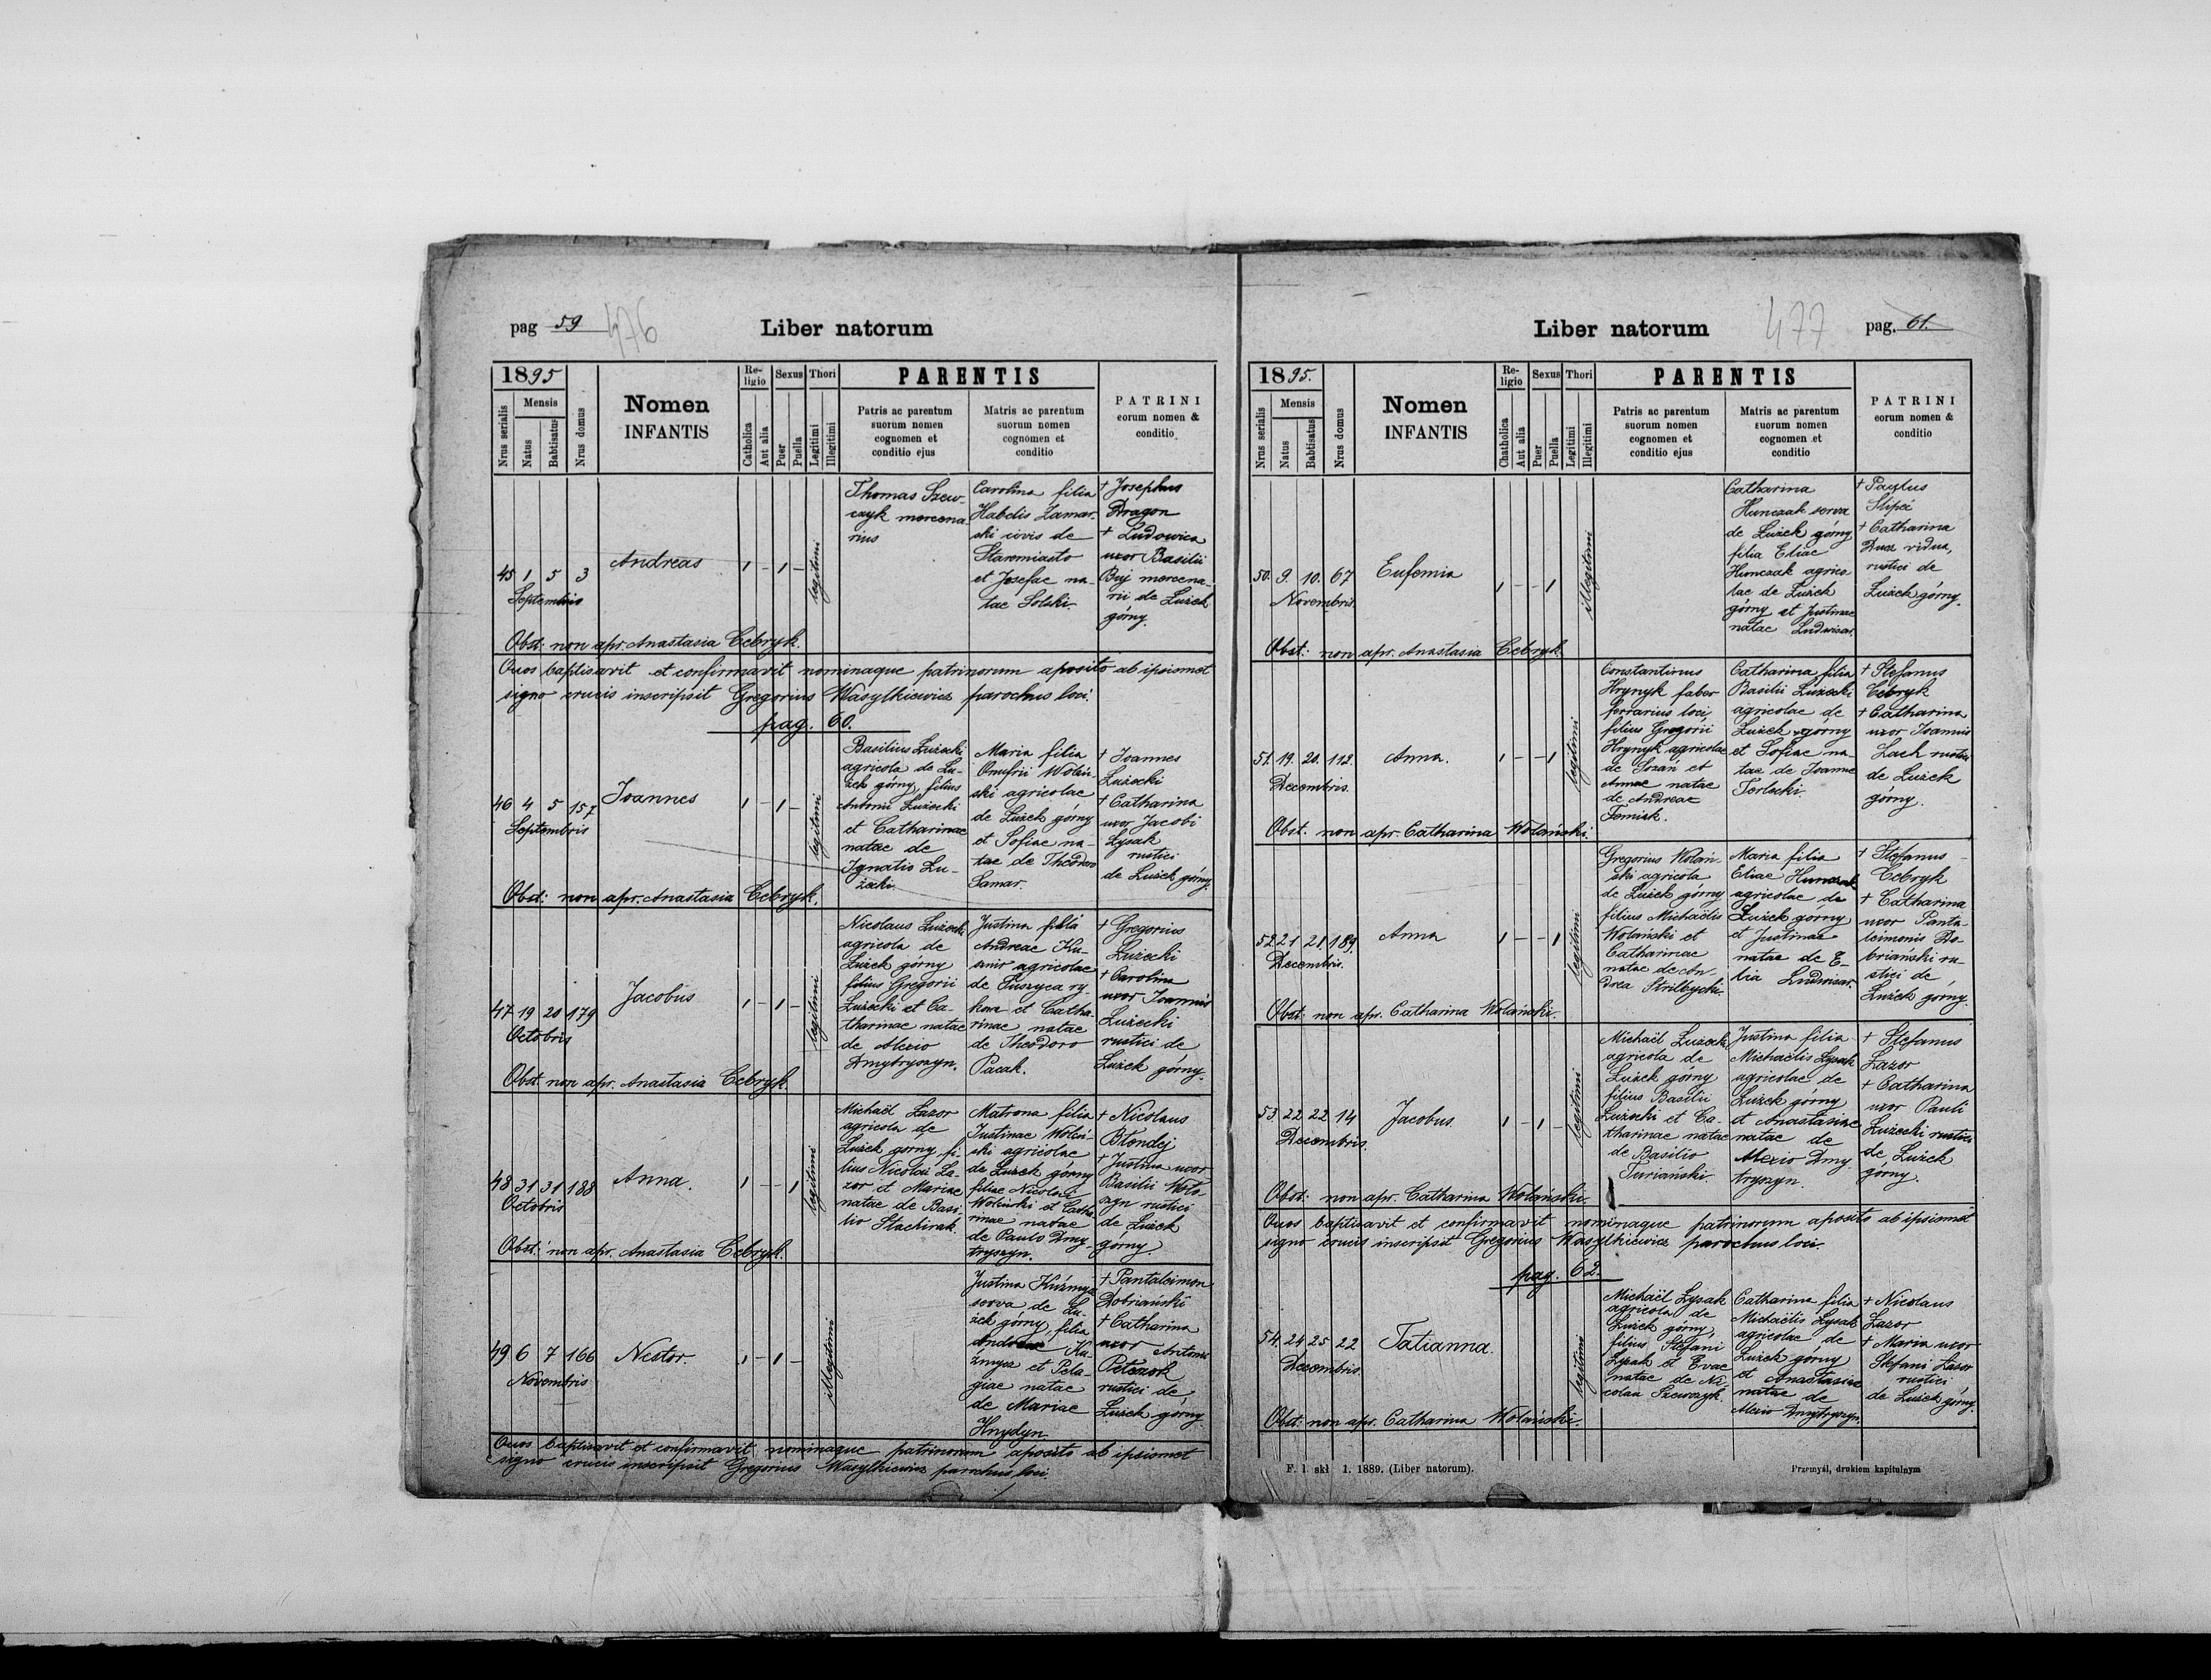 pag 59
476
Liber natorum
1895
Mensis
Nrus serialis
Natus
Babtisatus
Nrus domus
Nomen
INFANTIS
Re-
ligio
Catholica
Aut alia
Sexus
Puer
Puella
Thori
Legitimi
Illegitimi
PARENTIS
Patris ac parentum
suorum nomen
cognomen et
conditio ejus
Matris ac parentum
suorum nomen
cognomen et
conditio
PATRINI
eorum nomen &
conditio
45 1 5 3
Septembris
Andreas
1 - 1 -
legitimi
Thomas Szew-
czyk mercena
rius
Carolina filia
Habelis Zamar-
ski civis de
Staremiasto
et Josefae na-
tae Solski.
† Josephus
Dragon
† Ludowica
uxor Basilii
Buj mercena-
rii de Łużek
górny.
Obst: non apr. Anastasia Cebryk.
Quos baptisavit et confirmavit nominaque patrinorum aposito ab ipsismet
signo crucis inscripsit Gregorius Wasylkiewicz parochus loci.
pag. 60.
46 4 5 157
Septembris
Joannes
1 - 1 -
legitimi
Basilius Łużecki
agricola de Łu-
żek górny, filius
Antonii Łużecki
et Catharinae
natae de
Ignatio Łu-
żecki.
Maria filia
Onufrii Wolań-
ski agricolae
de Łużek górny
et Sofiae na-
tae de Theodoro
Samar.
† Joannes
Łużecki
† Catharina
uxor Jacobi
Łysak
rustici
de Łużek górny.
Obst: non apr. Anastasia Cebryk.
47 19 20 179
Octobris
Jacobus
1 - 1 -
legitimi
Nicolaus Łużecki
agricola de
Łużek górny
filius Gregorii
Łużecki et Ca-
tharinae natae
de Alexio
Dmytryszyn.
Justina filia
Andreae Ku-
agricolae
de Suszyca ry-
kowa et Catha-
rinae natae
de Theodoro
Pacak.
† Gregorius
Łużecki
† Carolina
uxor Joannis
Łużecki
rustici de
Łużek górny.
Obst: non apr. Anastasia Cebryk.
48 31 31 188
Octobris
Anna.
1 - - 1
legitimi
Michaël Łazor
agricola de
Łużek górny fi-
lius Nicolai Ła-
zor et Mariae
natae de Basi-
lio Stachirak.
Matrona filia
Justinae Wolań-
ski agricolae
de Łużek górny
filiae Nicolai
Wolański et Catha-
rinae natae
de Paulo Dmy-
tryszyn.
† Nicolaus
Błondej
† Justina uxor
Basilii Woło-
szyn rustici
de Łużek
górny.
Obst: non apr. Anastasia Cebryk.
49 6 7 166
Novembris
Nestor.
1 - 1 -
illegitimi
Justina Kuźmycz
serva de Łu-
żek górny, filia
Andreae Ku-
źmycz et Pela-
giae natae
de Mariae
Hnydyn
† Pantaleimon
Dobriański
† Catharina
uxor Antonii
Petczak
rustici de
Łużek górny.
Quos baptisavit et confirmavit nominaque patrinorum aposito ab ipsismet
signo crucis inscripsit Gregorius Wasylkiewicz parochus loci.
Liber natorum
477
pag. 61.
1895.
Mensis
Nrus serialis
Natus
Babtisatus
Nrus domus
Nomen
INFANTIS
Re-
ligio
Chatholica
Aut alia
Sexus
Puer
Puella
Thori
Legitimi
Illegitimi
PARENTIS
Patris ac parentum
suorum nomen
cognomen et
conditio ejus
Matris ac parentum
suorum nomen
cognomen et
conditio
PATRINI
eorum nomen &
conditio
50. 9. 10. 67
Novembris.
Eufemia
1 - - 1
illegitimi
Catharina
Hunczak serva
de Łużek górny
filia Eliae
Hunczak agrico
lae de Łużek
górny et Justinae
natae Ludwisar.
† Paulus
Slipeć
† Catharina
Ducz vidua,
rustici de
Łużek górny.
Obst: non apr. Anastasia Cebryk.
51. 19. 20. 112.
Decembris.
Anna.
1 - - 1
legitimi
Constantinus
Hrynyk faber
ferrarius loci,
filius Gregorii
Hrynyk agricolae
de Sozań et
Annae natae
de Andreae
Fomiak.
Catharina filia
Basilii Łużecki
agricolae de
Łużek górny
et Sofiae na-
tae de Joanne
Terlecki.
† Stefanus
Cebryk
† Catharina
uxor Joannis
Lach rustici
de Łużek
górny.
Obst. non apr. Catharina Wolański.
52. 21 21. 189.
Decembris.
Anna
1 - - 1
legitimi
Gregorius Wolań-
ski agricola
de Łużek górny
filius Michaëlis
Wolański et
Catharinae
natae de An-
drea Strilbycki.
Maria filia
Eliae Hunczak
agricolae de
Łużek górny
et Justinae
natae de E-
lia Ludwisar.
† Stefanus
Cebryk
† Catharina
uxor Panta-
leimonis Do-
briański ru-
stici de
Łużek górny.
Obst: non apr. Catharina Wolański.
53. 22 22 14
Decembris.
Jacobus.
1 - 1 -
legitimi
Michaël Łużecki
agricola de
Łużek górny
filius Basilii
Łużecki et Ca-
tharinae natae
de Basilio
Turiański.
Justina filia
Michaëlis Łysak
agricolae de
Łużek górny
et Anastasiae
natae de
Alexio Dmy-
tryszyn.
† Stefanus
Łazor
† Catharina
uxor Pauli
Łużecki rustici
de Łużek
górny.
Obst: non apr. Catharina Wolański.
Quos baptisavit et confirmavit nominaque patrinorum aposito ab ipsismet
signo crucis inscripsit Gregorius Wasylkiewicz parochus loci.
pag. 62.
54. 24 25 22
Decembris.
Tatianna.
legitimi
Michaël Łysak
agricola de
Łużek górny,
filius Stefani
Łysak et Evae
natae de Ni-
colao Szewczyk.
Catharina filia
Michaëlis Łysak
agricolae de
Łużek górny
et Anastasiae
natae de
Alexio Dmytryszyn.
† Nicolaus
Łazor
† Maria uxor
Stefani Łazor
rustici
de Łużek górny.
Obst: non apr. Catharina Wolański.
F. 1 skł 1. 1889. (Liber natorum).
Przemyśl, drukiem kapitulnym